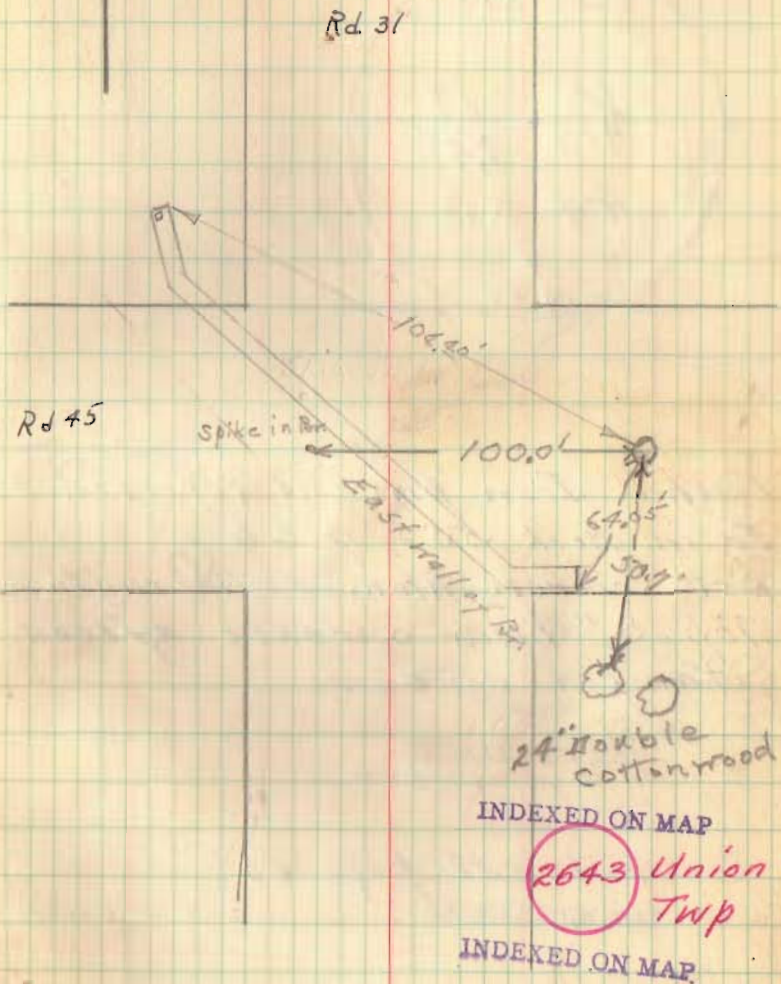 Rd. 31
Rd 45
Spike in Br.
100.0'
East wall of Br.
24" Double
Cottonwood
INDEXED ON MAP
2643 Union
Twp
INDEXED ON MAP